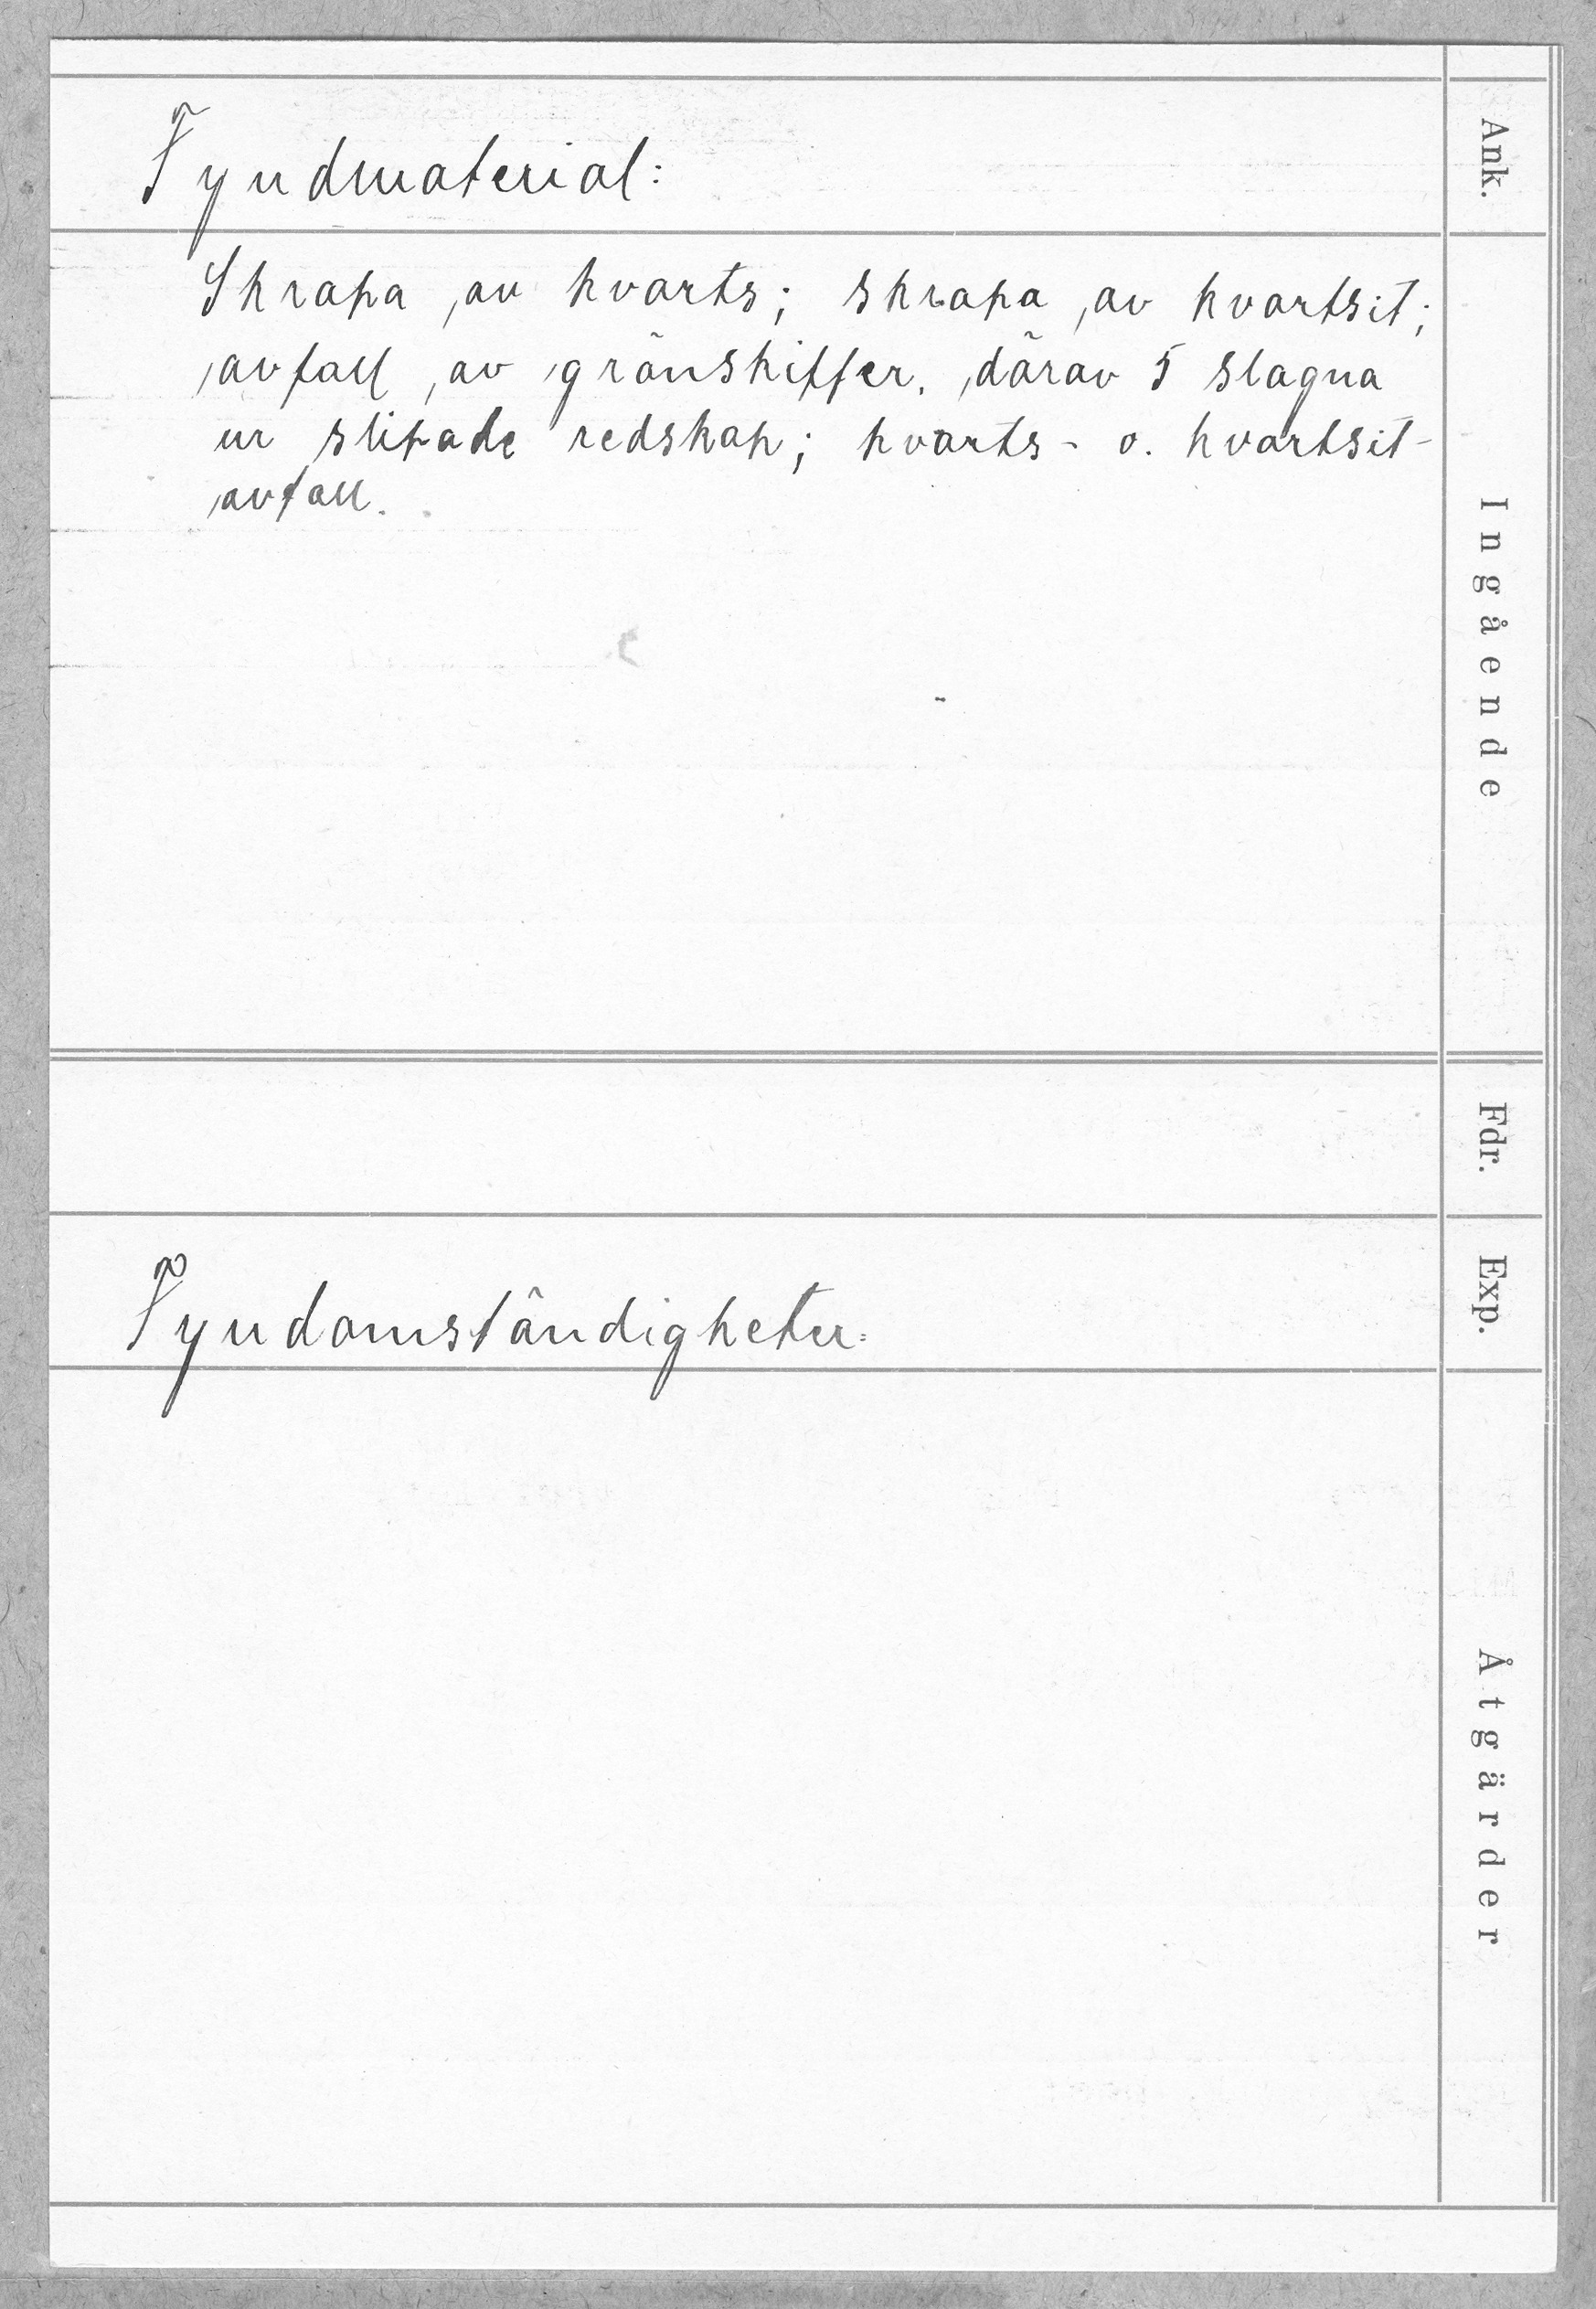 Fyndmaterial:
Skrapa av kvarts; skrapa av kvartsit;
avfall av grönskiffer, därav 5 slagna
ur slipade redskap; kvarts- o. kvartsit-
avfall.
Fyndomständigheter:
Ank.
Ingående
Fdr.
Exp.
Åtgärder